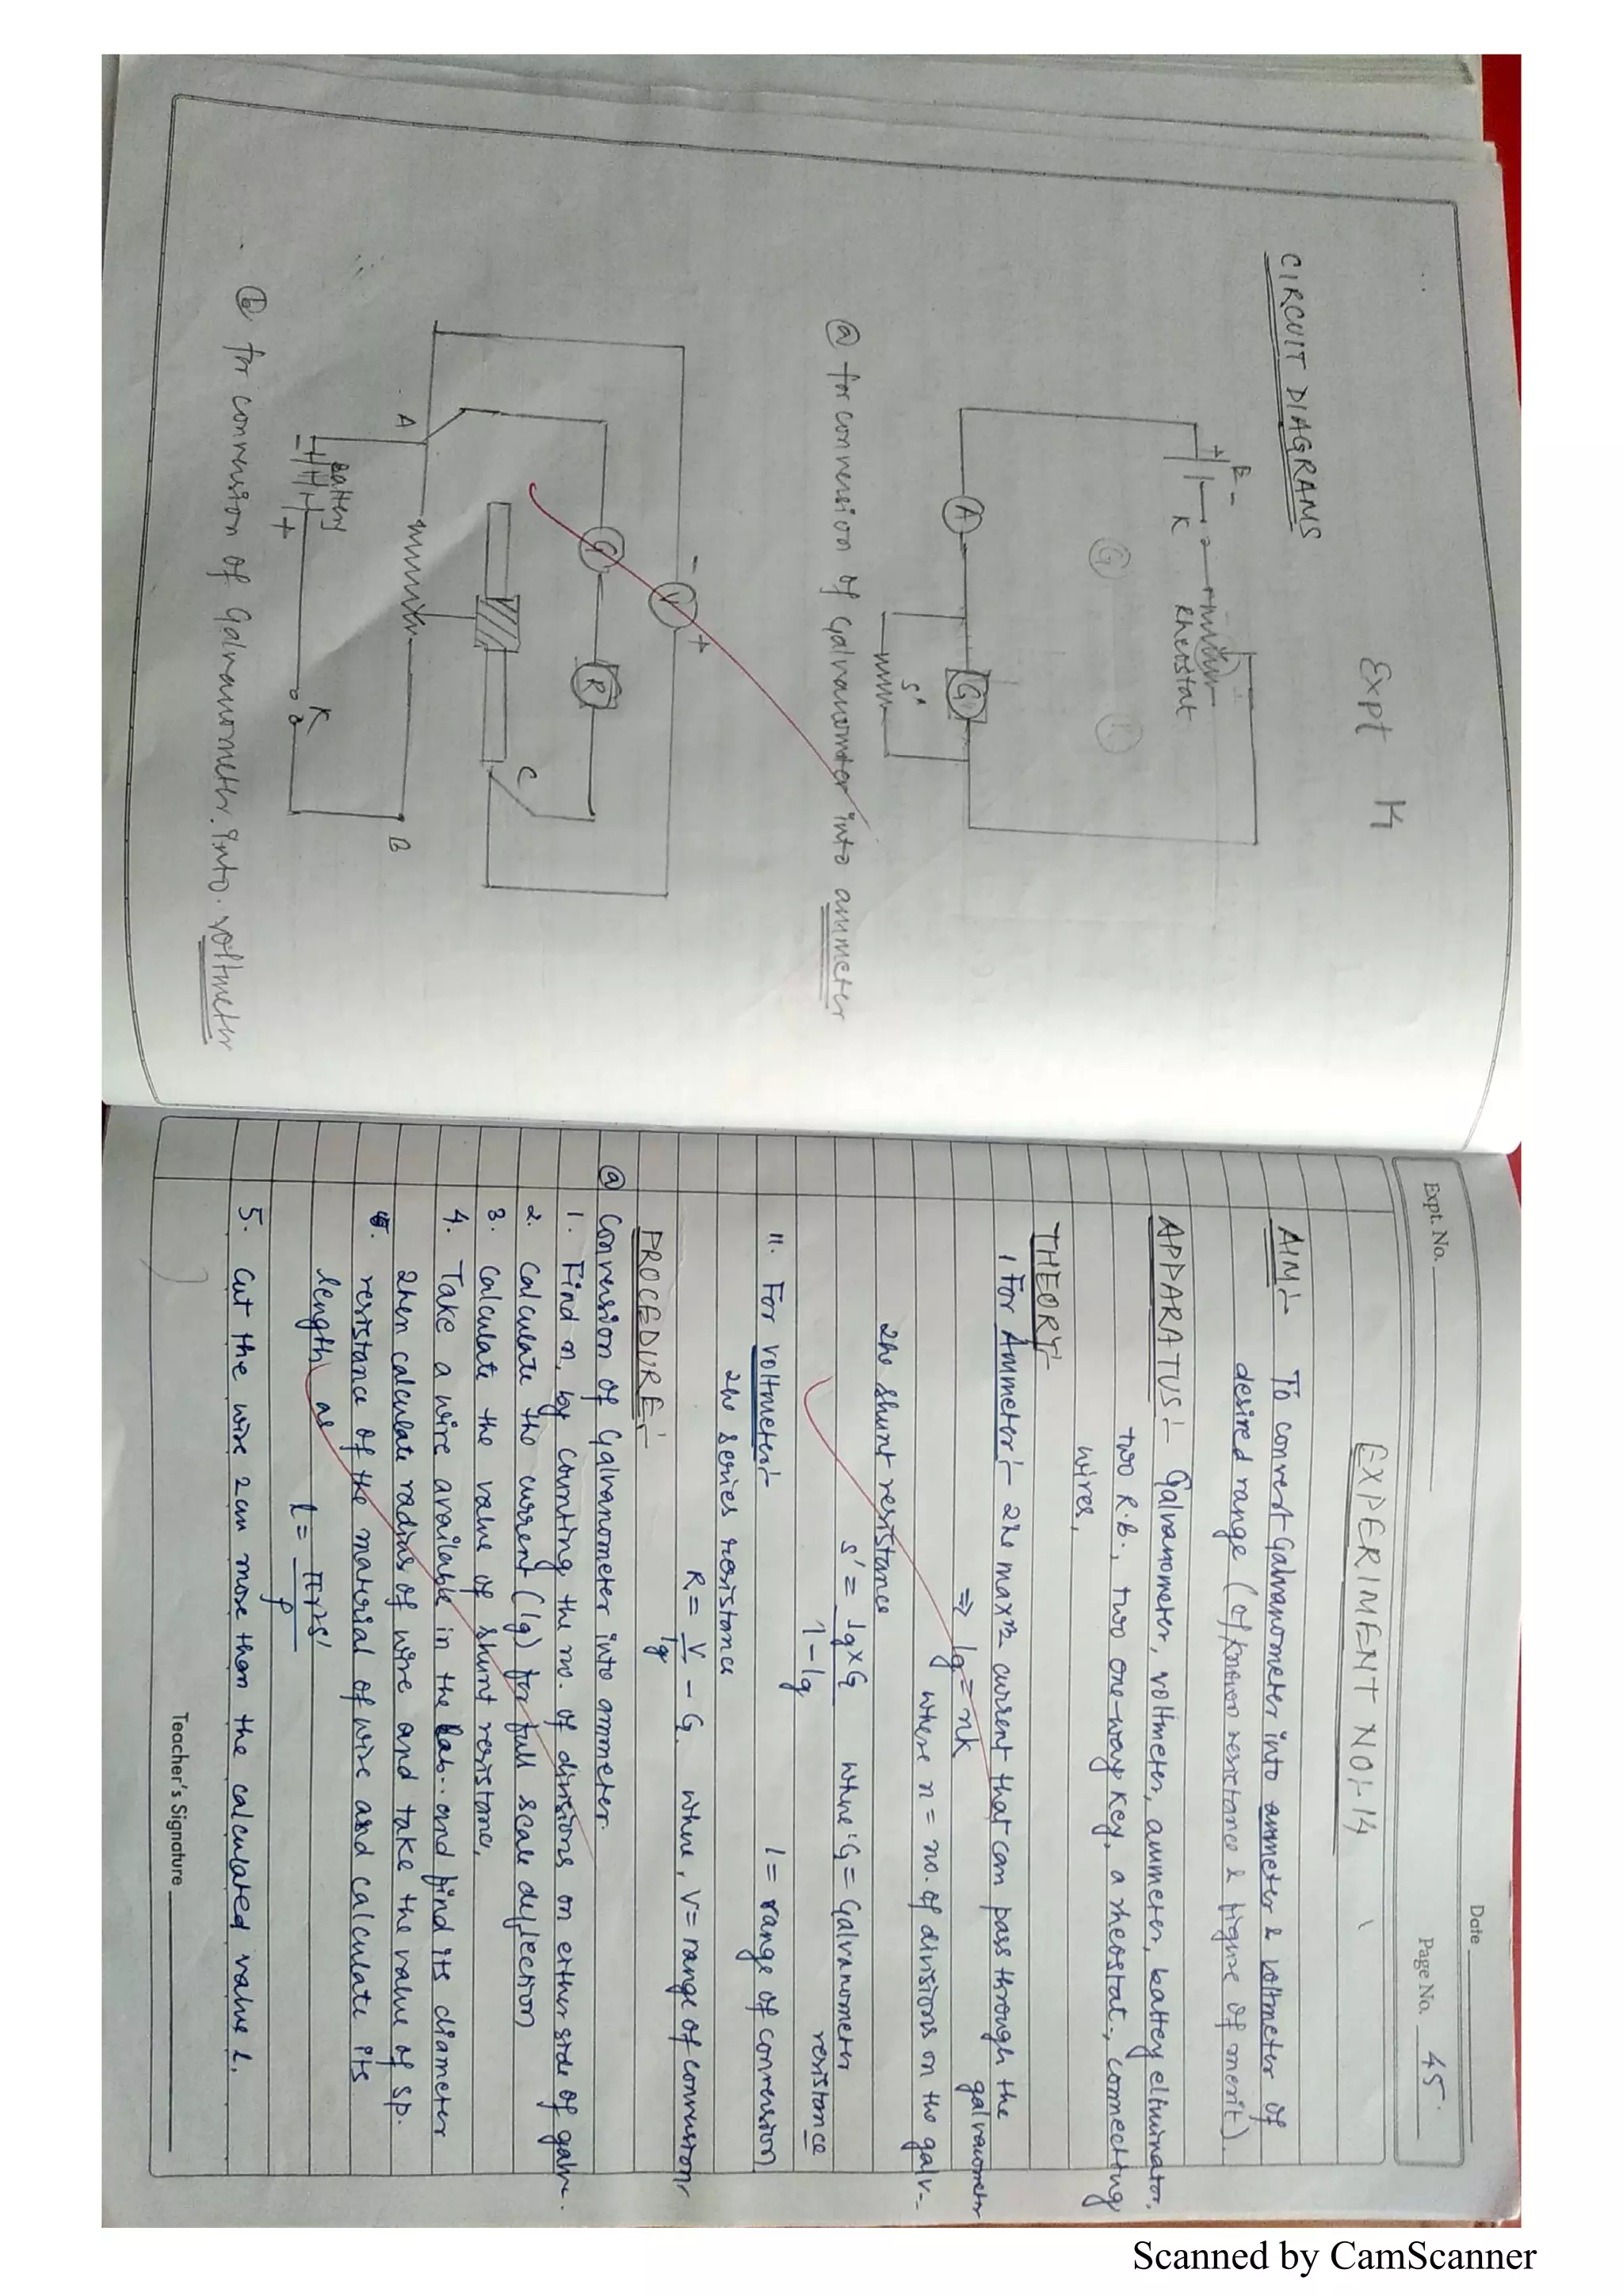 Expt 14
CIRCUIT DIAGRAMS
+ B -
K
Rheostat
A
G
S'
@ for conversion of Galvanometer into ammeter
- V +
G
R
C
A
B
Battery
- +
K
ⓑ for conversion of Galvanometer into voltmeter
Date
Expt. No.
Page No. 45.
EXPERIMENT NO:- 14
AIM:- To convert Galvanometer into ammeter & voltmeter of
desired range (of known resistance & figure of merit).
APPARATUS:- Galvanometer, voltmeter, ammeter, battery eliminator,
two R.B., two one-way key, a rheostat, connecting
wires,
THEORY:-
1 For Ammeter:- The maxm current that can pass through the
galvanometr
⇒ Ig = nk
where n = no. of divisions on the galv-
The shunt resistance
S' = Ig×G / I-Ig where G = Galvanometer
resistance
II. For voltmeter:- I = range of conversion
The series resistance
R = V/Ig - G. where, V = range of conversion
PROCEDURE:-
@ Conversion of Galvanometer into ammeter.
1. Find n, by counting the no. of divisions on either side of galv.
2. Calculate the current (Ig) for full scale deflection
3. Calculate the value of shunt resistance,
4. Take a wire available in the lab.. and find its diameter
Then calculate radius of wire and take the value of sp.
resistance of the material of wire and calculate its
length as
l = πr²S' / ρ
5. Cut the wire 2cm more than the calculated value l.
Teacher's Signature
Scanned by CamScanner